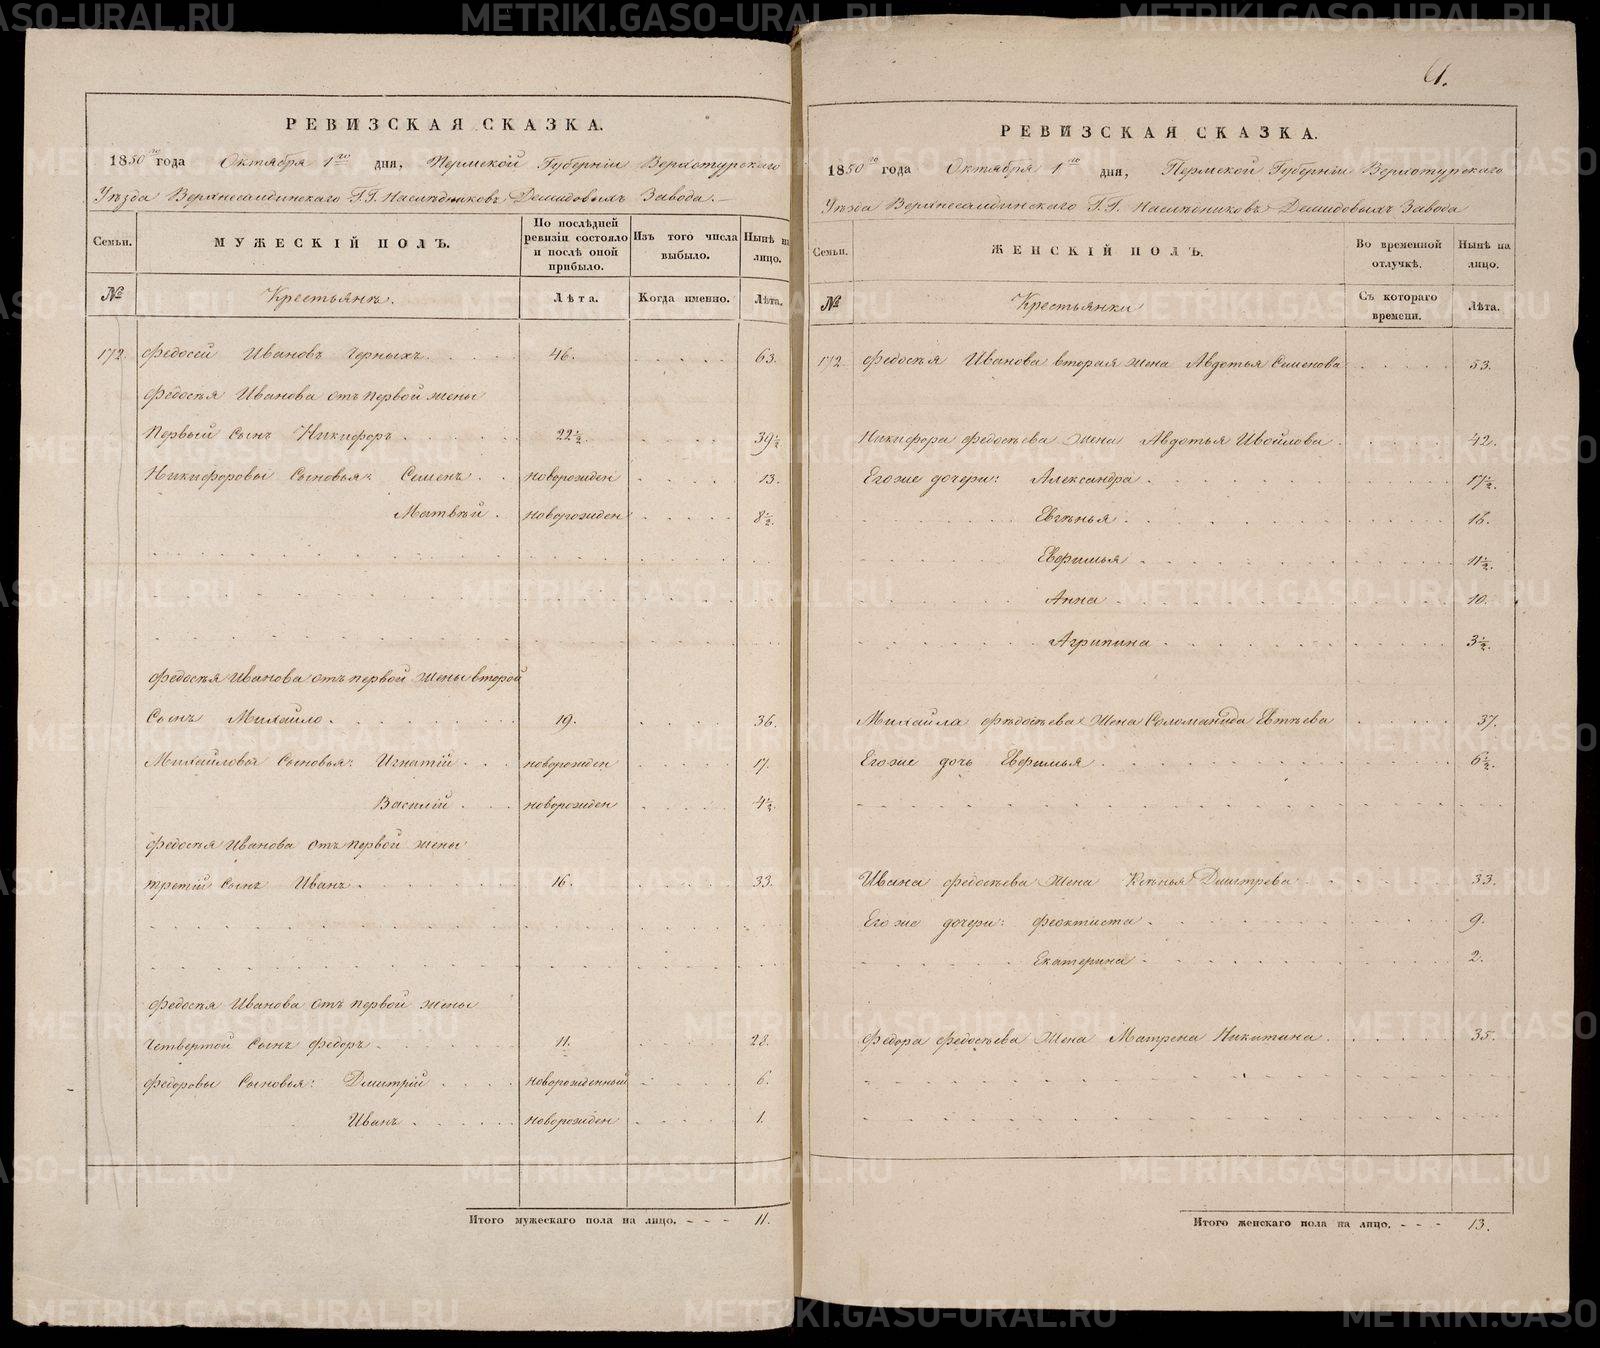 РЕВИЗСКАЯ СКАЗКА.
1850го года Октября 1го дня, Пермской Губерніи Верхотурскаго
Уѣзда Верхнесалдинскаго Г.Г. Наслѣдниковъ Демидовыхъ Завода.
Семьи.
МУЖЕСКІЙ ПОЛЪ.
По послѣдней ревизіи состояло и послѣ оной прибыло.
Изъ того числа выбыло.
Нынѣ на лицо.
№
Крестьянъ.
Лѣта.
Когда именно.
Лѣта.
172. Федосей Ивановъ Черныхъ. 46. 63.
Федосѣя Иванова отъ первой жены
Первый сынъ Никифоръ. 22½. 39½
Никифоровы Сыновья: Семенъ. новорожден 13.
Матвѣй. новорожден 8½.
Федосѣя Иванова отъ первой жены второй
Сынъ Михайло. 19. 36.
Михайловы Сыновья: Игнатій. новорожден 17.
Василій. новорожден 4½.
Федосѣя Иванова отъ первой жены
третій сынъ Иванъ. 16. 33.
Федосѣя Иванова отъ первой жены
Четвертой Сынъ Федоръ. 11. 28.
Федоровы Сыновья: Дмитрій новорожденный 6.
Иванъ. новорожден 1.
Итого мужескаго пола на лицо. - - - 11.
РЕВИЗСКАЯ СКАЗКА.
1850го года Октября 1го дня, Пермской Губерніи Верхотурскаго
Уѣзда Верхнесалдинскаго Г.Г. Наслѣдниковъ Демидовыхъ Завода
Семьи.
ЖЕНСКІЙ ПОЛЪ.
Во временной отлучкѣ.
Нынѣ на лицо.
№
Крестьянки
Съ котораго времени.
Лѣта.
172. Федосѣя Иванова вторая жена Авдотья Семенова 53.
Никифора Федосѣева жена Авдотья Ивойлова. 42.
Его же дочери: Александра. 17½.
Евгѣнья. 16.
Евфимья. 11½.
Анна. 10.
Агрипина. 3½.
Михайла Федосѣева Жена Соломанида Евтѣева 37.
Его же дочь Евфимья. 6½.
Ивана Федосѣева Жена Ксѣнья Дмитрева 33.
Его же дочери: Феоктиста. 9.
Екатерина. 2.
Федора Федосѣева Жена Матрена Никитина. 35.
Итого женскаго пола на лицо. - - - 13.
METRIKI.GASO-URAL.RU